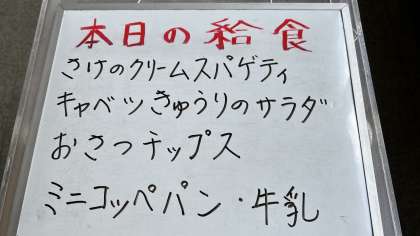 本日の給食
さけのクリームスパゲティ
キャベツきゅうりのサラダ
おさつチップス
ミニコッペパン・牛乳